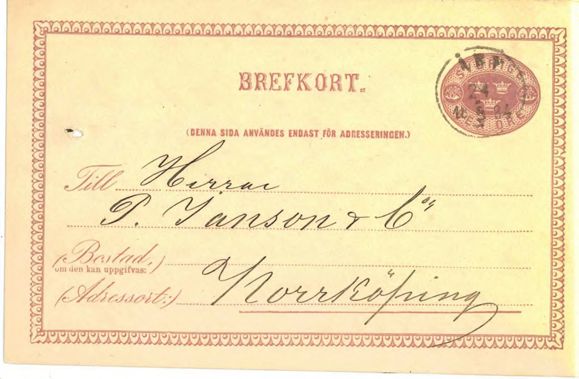 BREFKORT.
SVERIGE
(DENNA SIDA ANVÄNDES ENDAST FÖR ADRESSERINGEN.)
Till Herrar
P. Janson & Co
(Bostad,
om den kan uppgifvas:)
(Adressort:) Norrköping